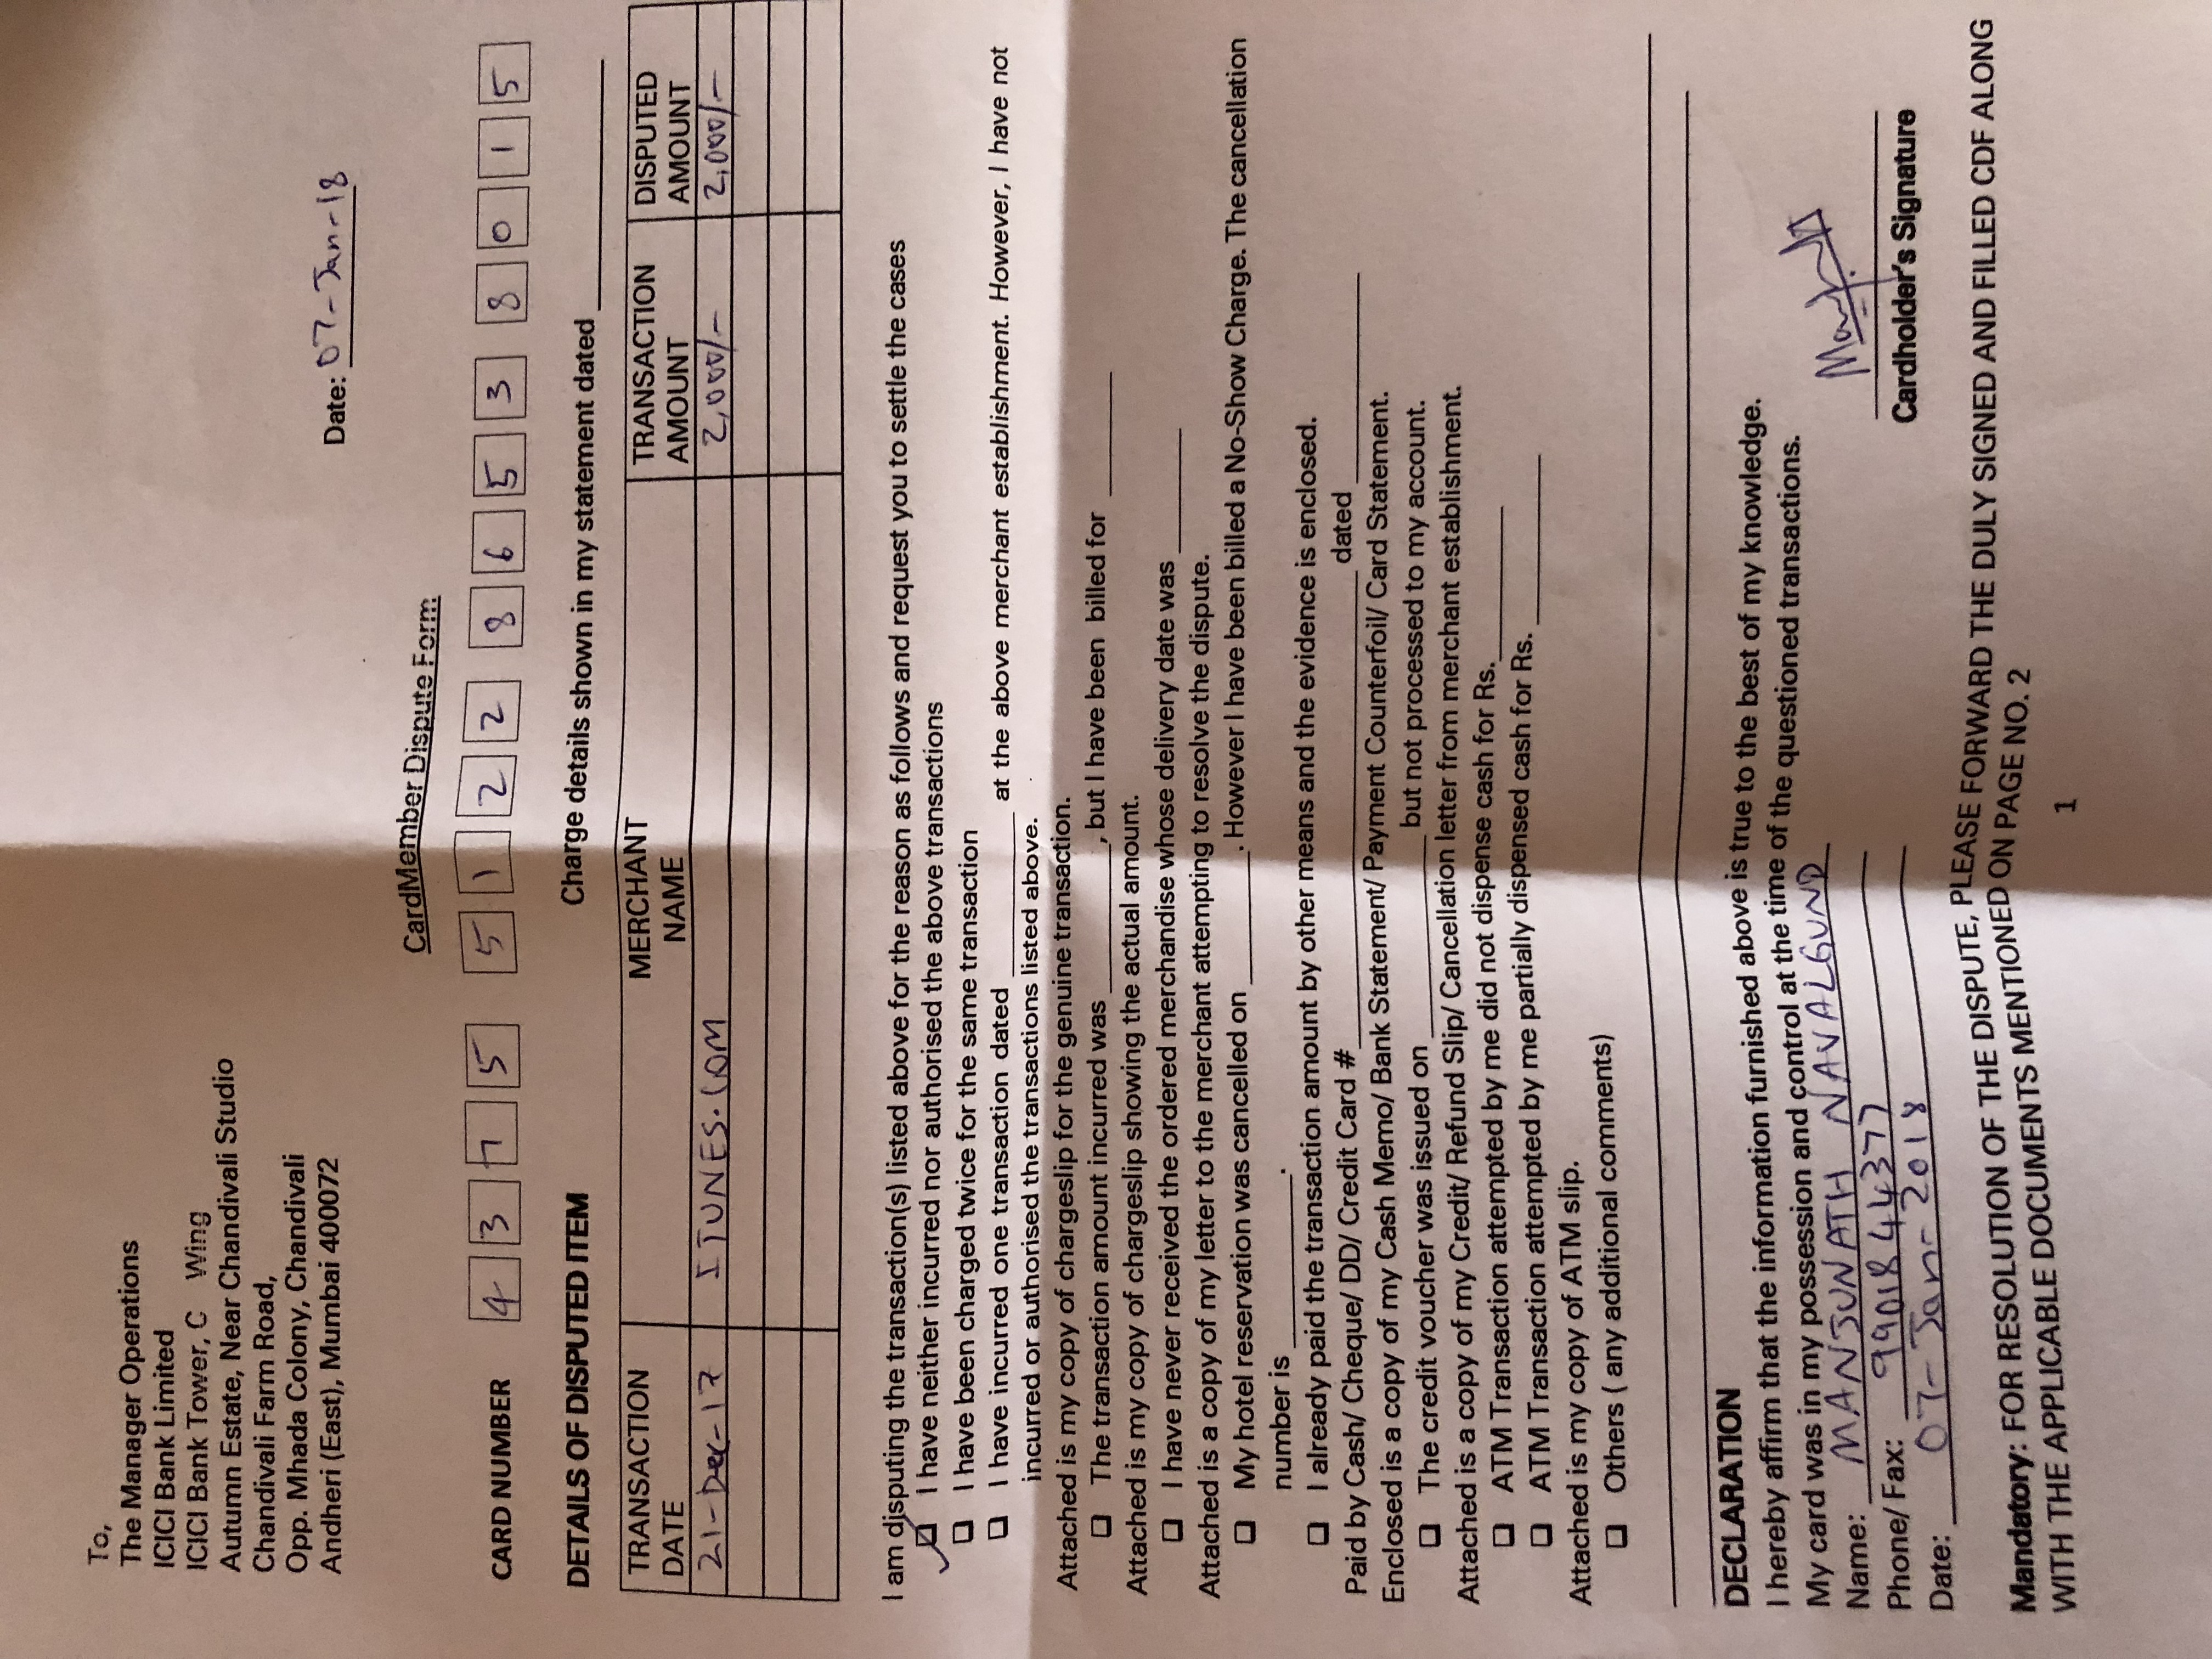 To,
The Manager Operations
ICICI Bank Limited
ICICI Bank Tower, C Wing
Autumn Estate, Near Chandivali Studio
Chandivali Farm Road,
Opp. Mhada Colony, Chandivali
Andheri (East), Mumbai 400072
Date: 07-Jan-18
CardMember Dispute Form
CARD NUMBER 4 3 7 5 5 1 2 2 8 6 5 3 8 0 1 5
DETAILS OF DISPUTED ITEM Charge details shown in my statement dated
TRANSACTION DATE MERCHANT NAME TRANSACTION AMOUNT DISPUTED AMOUNT
21-Dec-17 ITUNES.COM 2,000/- 2,000/-
I am disputing the transaction(s) listed above for the reason as follows and request you to settle the cases
I have neither incurred nor authorised the above transactions
I have been charged twice for the same transaction
I have incurred one transaction dated ________ at the above merchant establishment. However, I have not
incurred or authorised the transactions listed above.
Attached is my copy of chargeslip for the genuine transaction.
The transaction amount incurred was ________, but I have been billed for ________
Attached is my copy of chargeslip showing the actual amount.
I have never received the ordered merchandise whose delivery date was ________
Attached is a copy of my letter to the merchant attempting to resolve the dispute.
My hotel reservation was cancelled on ________. However I have been billed a No-Show Charge. The cancellation
number is ________.
I already paid the transaction amount by other means and the evidence is enclosed.
Paid by Cash/ Cheque/ DD/ Credit Card #________ dated ________
Enclosed is a copy of my Cash Memo/ Bank Statement/ Payment Counterfoil/ Card Statement.
The credit voucher was issued on ________ but not processed to my account.
Attached is a copy of my Credit/ Refund Slip/ Cancellation letter from merchant establishment.
ATM Transaction attempted by me did not dispense cash for Rs.________
ATM Transaction attempted by me partially dispensed cash for Rs. ________
Attached is my copy of ATM slip.
Others ( any additional comments)
DECLARATION
I hereby affirm that the information furnished above is true to the best of my knowledge.
My card was in my possession and control at the time of the questioned transactions.
Name: MANJUNATH NAVALGUND
Phone/ Fax: 9901844377
Date: 07-Jan-2018
Cardholder's Signature
Mandatory: FOR RESOLUTION OF THE DISPUTE, PLEASE FORWARD THE DULY SIGNED AND FILLED CDF ALONG
WITH THE APPLICABLE DOCUMENTS MENTIONED ON PAGE NO. 2
1